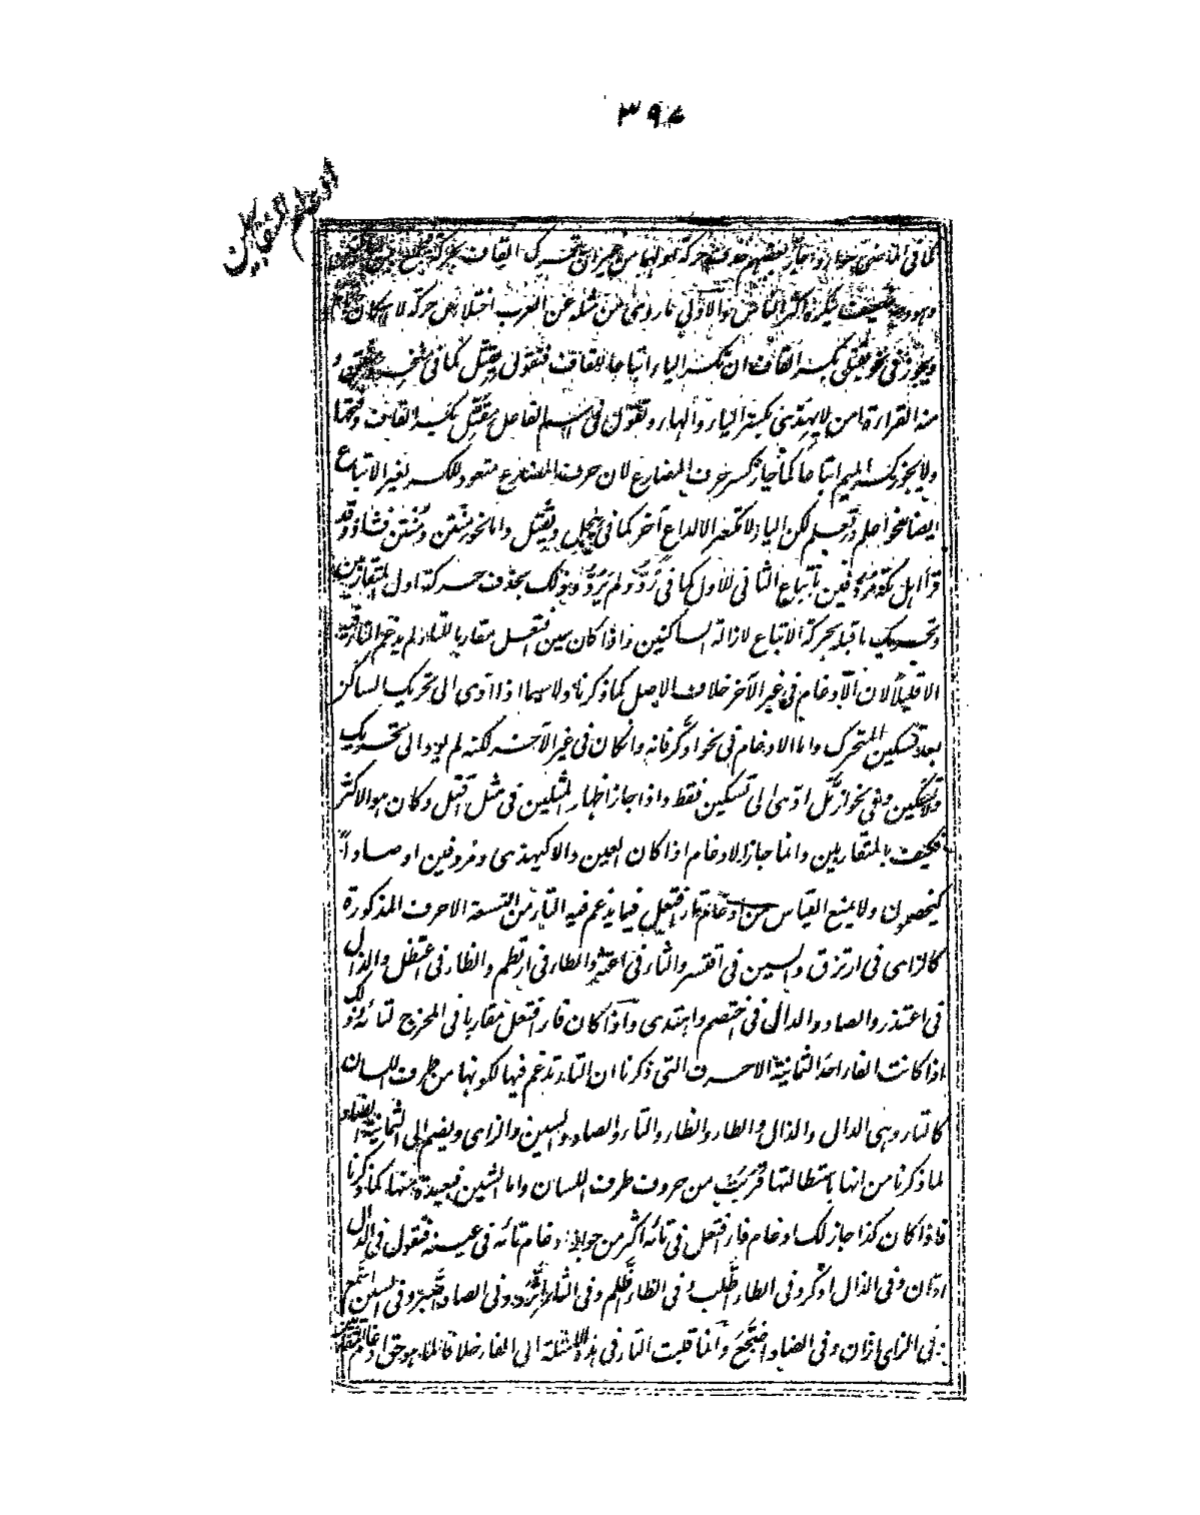 ٣٩٤
كما فى الماضى جوازا واجاز بعضهم حذف حركة اوليهما من غير ان يحرك القاف بحركة فيجمع بين
وهو وجه ضعيف ينكره اكثر الناس والاولى ما روى من مثله عن العرب اختلاس حركة لا اسكان
ويجوز فى نحو يقتل بكسر القاف ان تكسر الياء اتباعا للقاف فتقول يقتل كما فى منخر ومنتن و
منه القراءة امن لا يهدى بكسر الياء والهاء وتقول فى اسم الفاعل مقتل بكسر القاف وفتحها
ولا يجوز كسر الميم اتباعا كما جاز كسر حرف المضارع لان حرف المضارع متعود للكسر بغير الاتباع
ايضا نحو اعلم وتعلم لكن الياء لا تكسر الا لداع آخر كما فى ييجل ويقتل واما نحو منتن ومنتن فشاذ وقد
قرأ اهل مكة مردفين باتباع الثانى للاول كما فى رد ولم يرد وذلك بحذف حركة اول المتقاربين
وتحريك ما قبله بحركة الاتباع لازالة الساكنين واذا كان عين افتعل مقاربا للتاء لم يدغم التاء فيه
الا قليلا لان الادغام فى غير الآخر خلاف الاصل كما ذكرنا ولا سيما اذا ادى الى تحريك الساكن
بعد تسكين المتحرك واما الادغام فى نحو ادكر فانه وان كان فى غير الآخر لكنه لم يود الى تحريك
ولا تسكين وفى نحو ازمل ادى الى تسكين فقط واذا جاز اظهار المثلين فى مثل اقتتل وكان هو الاكثر
فكيف بالمتقاربين وانما جاز الادغام اذا كان العين دالا كيهدى ومردفين او صادا
كيخصمون ولا يمنع القياس من ادغام تاء افتعل فيما يدغم فيه التاء من التسعة الاحرف المذكورة
كالزاى فى ارتزق والسين فى اقتسر والثاء فى اعتثر والطاء فى ارتطم والظاء فى اعتظل والذال
فى اعتذر والصاد والدال فى اختصم واهتدى واذا كان فاء افتعل مقاربا فى المخرج لتائه وذلك
اذا كانت الفاء احد الثمانية الاحرف التى ذكرنا ان التاء تدغم فيها لكونها من طرف اللسان
كالتاء وهى الدال والذال والطاء والظاء والثاء والصاد والسين والزاى ويضم الى الثمانية الضاد
لما ذكرنا من انها باستطالتها قربت من حروف طرف اللسان واما الشين فبعيدة منها كما ذكرنا
فاذا كان كذا جاز لك ادغام فاء افتعل فى تائه اكثر من جواز ادغام تائه فى عينه فتقول فى الدال
ادان وفى الذال اذكر وفى الطاء اطلب وفى الظاء اظلم وفى الثاء اثرد وفى الصاد اصبر وفى السين اسمع
وفى الزاى ازان وفى الضاد اضجع وانما قلبت التاء فى هذه الامثلة الى الفاء خلافا لما هو حق ادغام المتقاربين